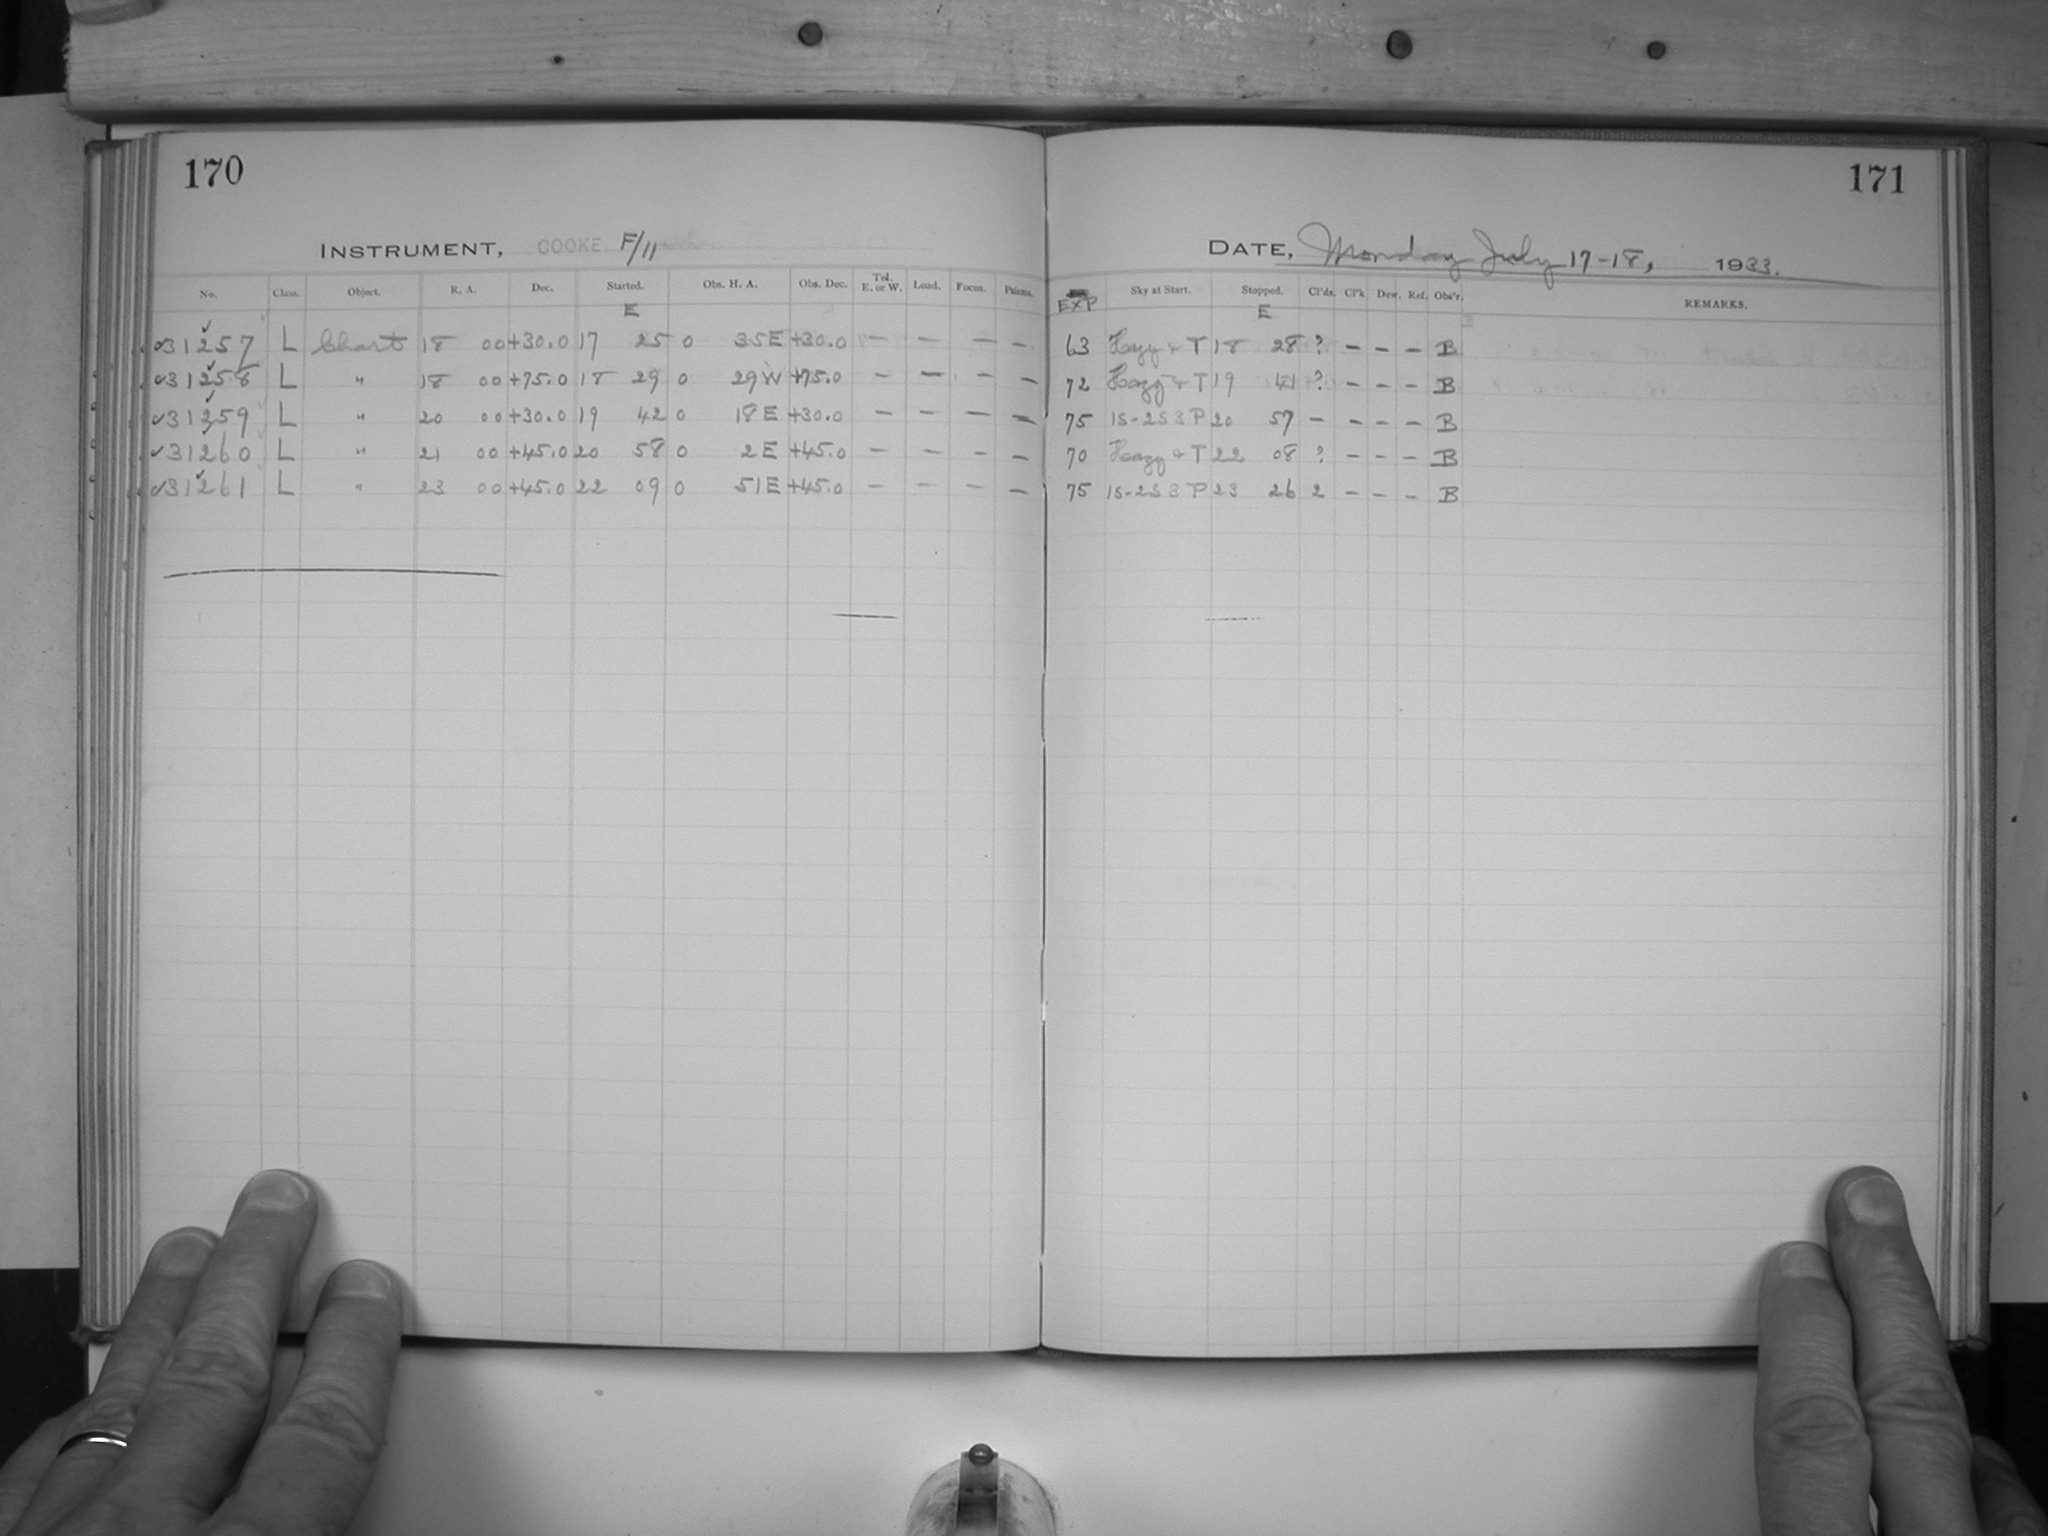 170
INSTRUMENT, COOKE F/11
No. Class. Object. R. A. Dec. Started. Obs. H. A. Obs. Dec. Tel. E. or W. Load. Focus. Prisms.
E
31257 L Chart 18 00 +30.0 17 25 0 35E +30.0 — — — —
31258 L " 18 00 +75.0 18 29 0 29W +75.0 — — — —
31259 L " 20 00 +30.0 19 42 0 18E +30.0 — — — —
31260 L " 21 00 +45.0 20 58 0 2E +45.0 — — — —
31261 L " 23 00 +45.0 22 09 0 51E +45.0 — — — —
171
DATE, Monday July 17-18, 1933.
EXP Sky at Start. Stopped. Cl'ds. Cl'k Dew. Ref. Obs'r. REMARKS.
E
63 Hazy + T 18 28 ? — — — B
72 Hazy + T 19 41 ? — — — B
75 1S-2S 3 P 20 57 — — — — B
70 Hazy + T 22 08 ? — — — B
75 1S-2S 3 P 23 26 2 — — — B